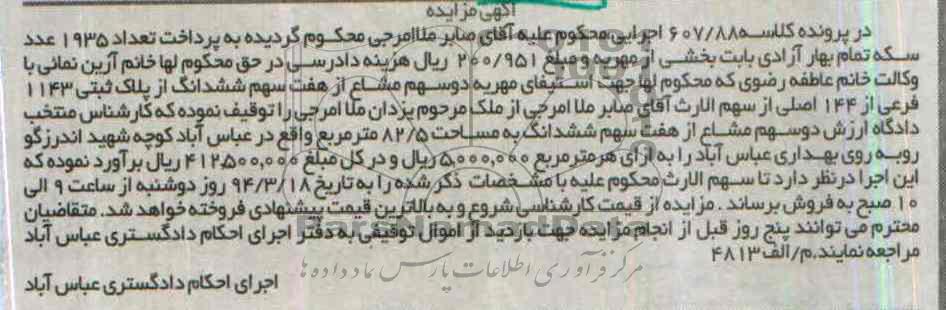 آگهی مزایده
در پرونده کلاسه ۶۰۷/۸۸ اجرایی محکوم علیه آقای صابر ملاامرجی محکوم گردیده به پرداخت تعداد ۱۹۳۵ عدد
سکه تمام بهار آزادی بابت بخشی از مهریه و مبلغ ۲۰۰/۹۵۱ ریال هزینه دادرسی در حق محکوم لها خانم آرین نمائی با
وکالت خانم عاطفه رضوی که محکوم لها جهت استیفای مهریه دوسهم مشاع از هفت سهم ششدانگ از پلاک ثبتی ۱۱۴۳
فرعی از ۱۴۴ اصلی از سهم الارث آقای صابر ملا امرجی از ملک مرحوم یزدان ملا امرجی را توقیف نموده که کارشناس منتخب
دادگاه ارزش دوسهم مشاع از هفت سهم ششدانگ به مساحت ۸۲/۵ مترمربع واقع در عباس آباد کوچه شهید اندرزگو
روبه روی بهداری عباس آباد را به ازای هر مترمربع ۵,۰۰۰,۰۰۰ ریال و در کل مبلغ ۴۱۲,۵۰۰,۰۰۰ ریال برآورد نموده که
این اجرا درنظر دارد تا سهم الارث محکوم علیه با مشخصات ذکر شده را به تاریخ ۹۴/۳/۱۸ روز دوشنبه از ساعت ۹ الی
۱۰ صبح به فروش برساند . مزایده از قیمت کارشناسی شروع و به بالاترین قیمت پیشنهادی فروخته خواهد شد. متقاضیان
محترم می توانند پنج روز قبل از انجام مزایده جهت بازدید از اموال توقیفی به دفتر اجرای احکام دادگستری عباس آباد
مراجعه نمایند.م/الف ۴۸۱۳
مرکز فرآوری اطلاعات پارس نماد داده ها
اجرای احکام دادگستری عباس آباد